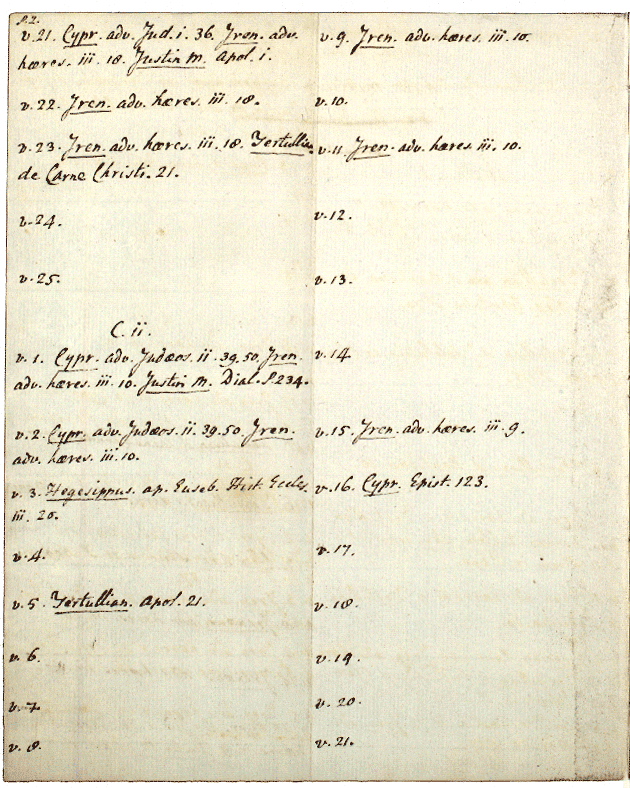 P.2.
v.21. Cypr. adv. Jud. i. 36. Iren. adv.
hæres. iii. 18. Justin M. Apol. i.
v.22. Iren. adv. hæres. iii. 18.
v.23. Iren. adv. hæres. iii. 18. Tertullian.
de Carne Christi. 21.
v.24.
v.25.
C. ii.
v. 1. Cypr. adv. Judæos. ii. 39.50. Iren.
adv. hæres. iii. 10. Justin M. Dial. P.234.
v.2. Cypr. adv. Judæos. ii. 39.50. Iren.
adv. hæres. iii. 10.
v. 3. Hegesippus. ap. Euseb. Hist. Eccles.
iii. 20.
v.4.
v. 5. Tertullian. Apol. 21.
v. 6.
v. 7
v. 8.
v. 9. Iren. adv. hæres. iii. 10.
v.10.
v.11. Iren. adv. hæres. iii. 10.
v.12.
v.13.
v.14
v.15. Iren. adv. hæres. iii. 9.
v.16. Cypr. Epist. 123.
v.17.
v.18.
v.19.
v. 20.
v.21.